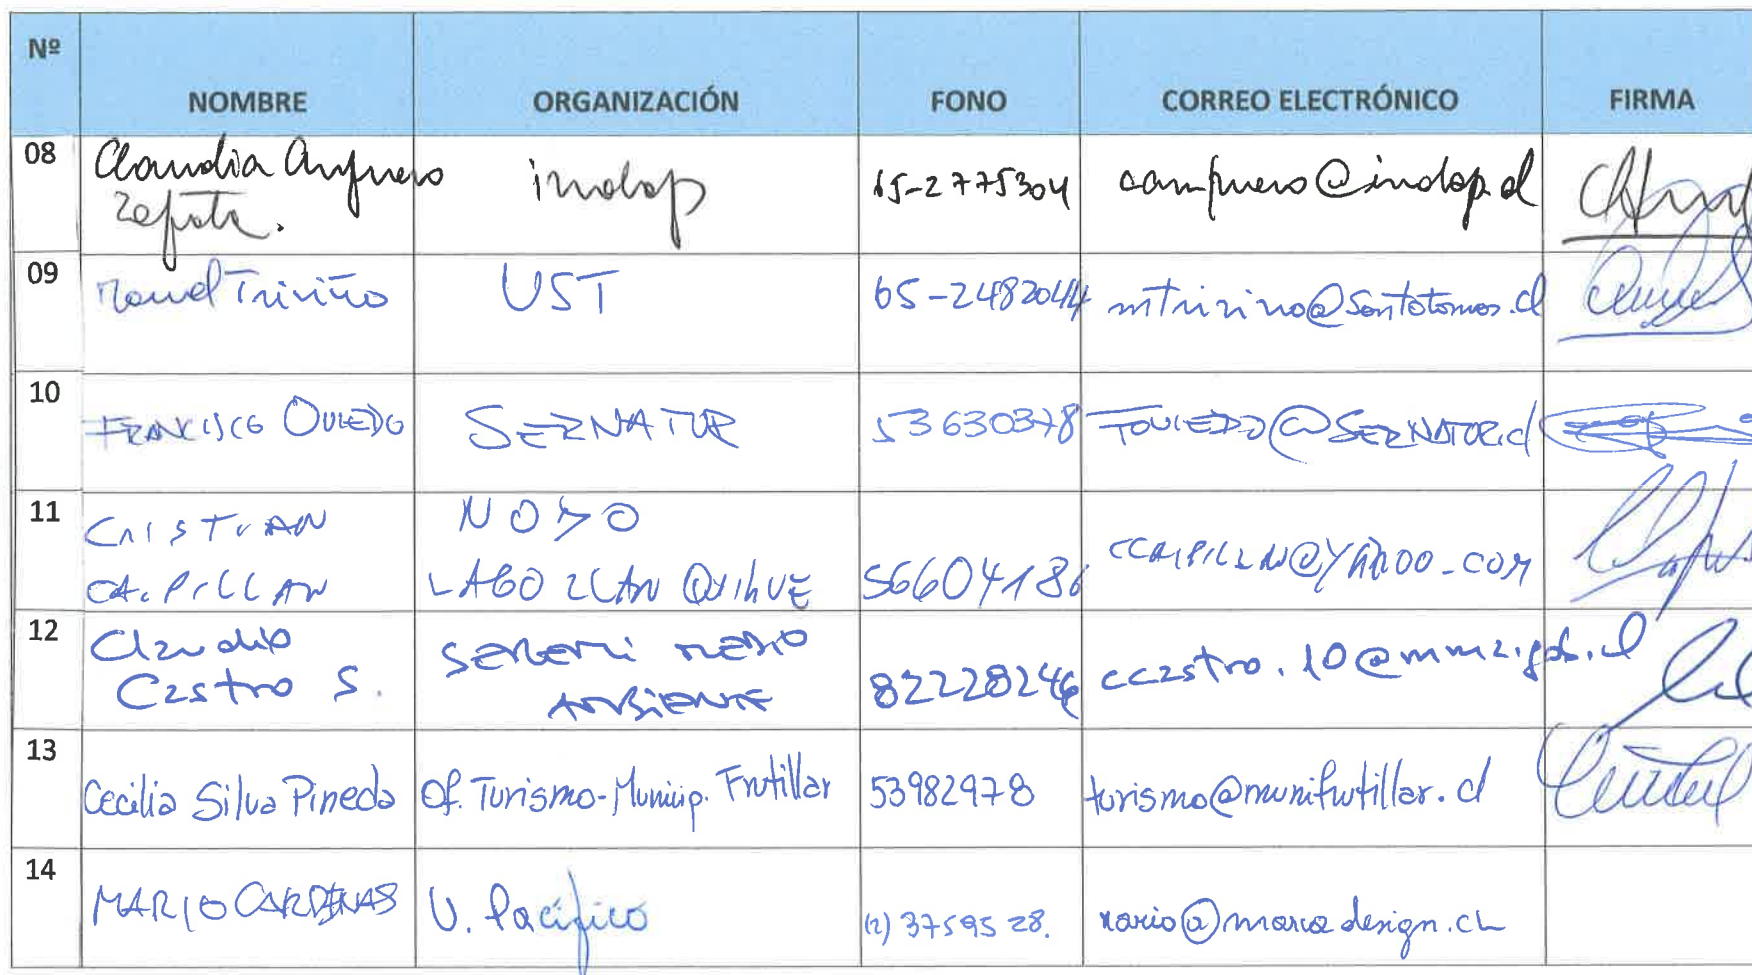 Nº NOMBRE ORGANIZACIÓN FONO CORREO ELECTRÓNICO FIRMA
08 Claudia Ampuero Zapata. indap 65-2775304 campuero@indap.cl
09 Triviño UST 65-2482044 mtrivino@santotomas.cl
10 FRANCISCO OVIEDO SERNATUR 53630378 FOVIEDO@SERNATUR.cl
11 CRISTIAN CAIPILLAN NODO LAGO LLANQUIHUE 56604186 CCAIPILLAN@YAHOO.COM
12 Claudio Castro S. SEREMI MEDIO AMBIENTE 82228246 ccastro.10@mma.gob.cl
13 Cecilia Silva Pineda Of. Turismo-Municip. Frutillar 53982978 turismo@munifrutillar.cl
14 MARIO CARDENAS U. Pacífico (2) 3759528. design.cl